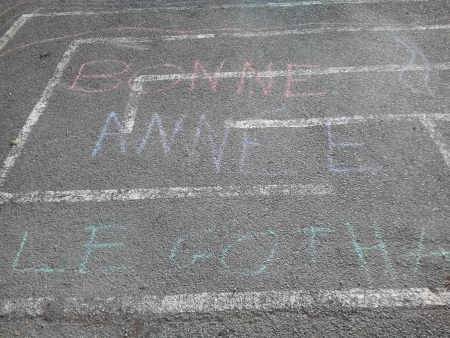 BONNE
ANNEE E
LE GOTHA